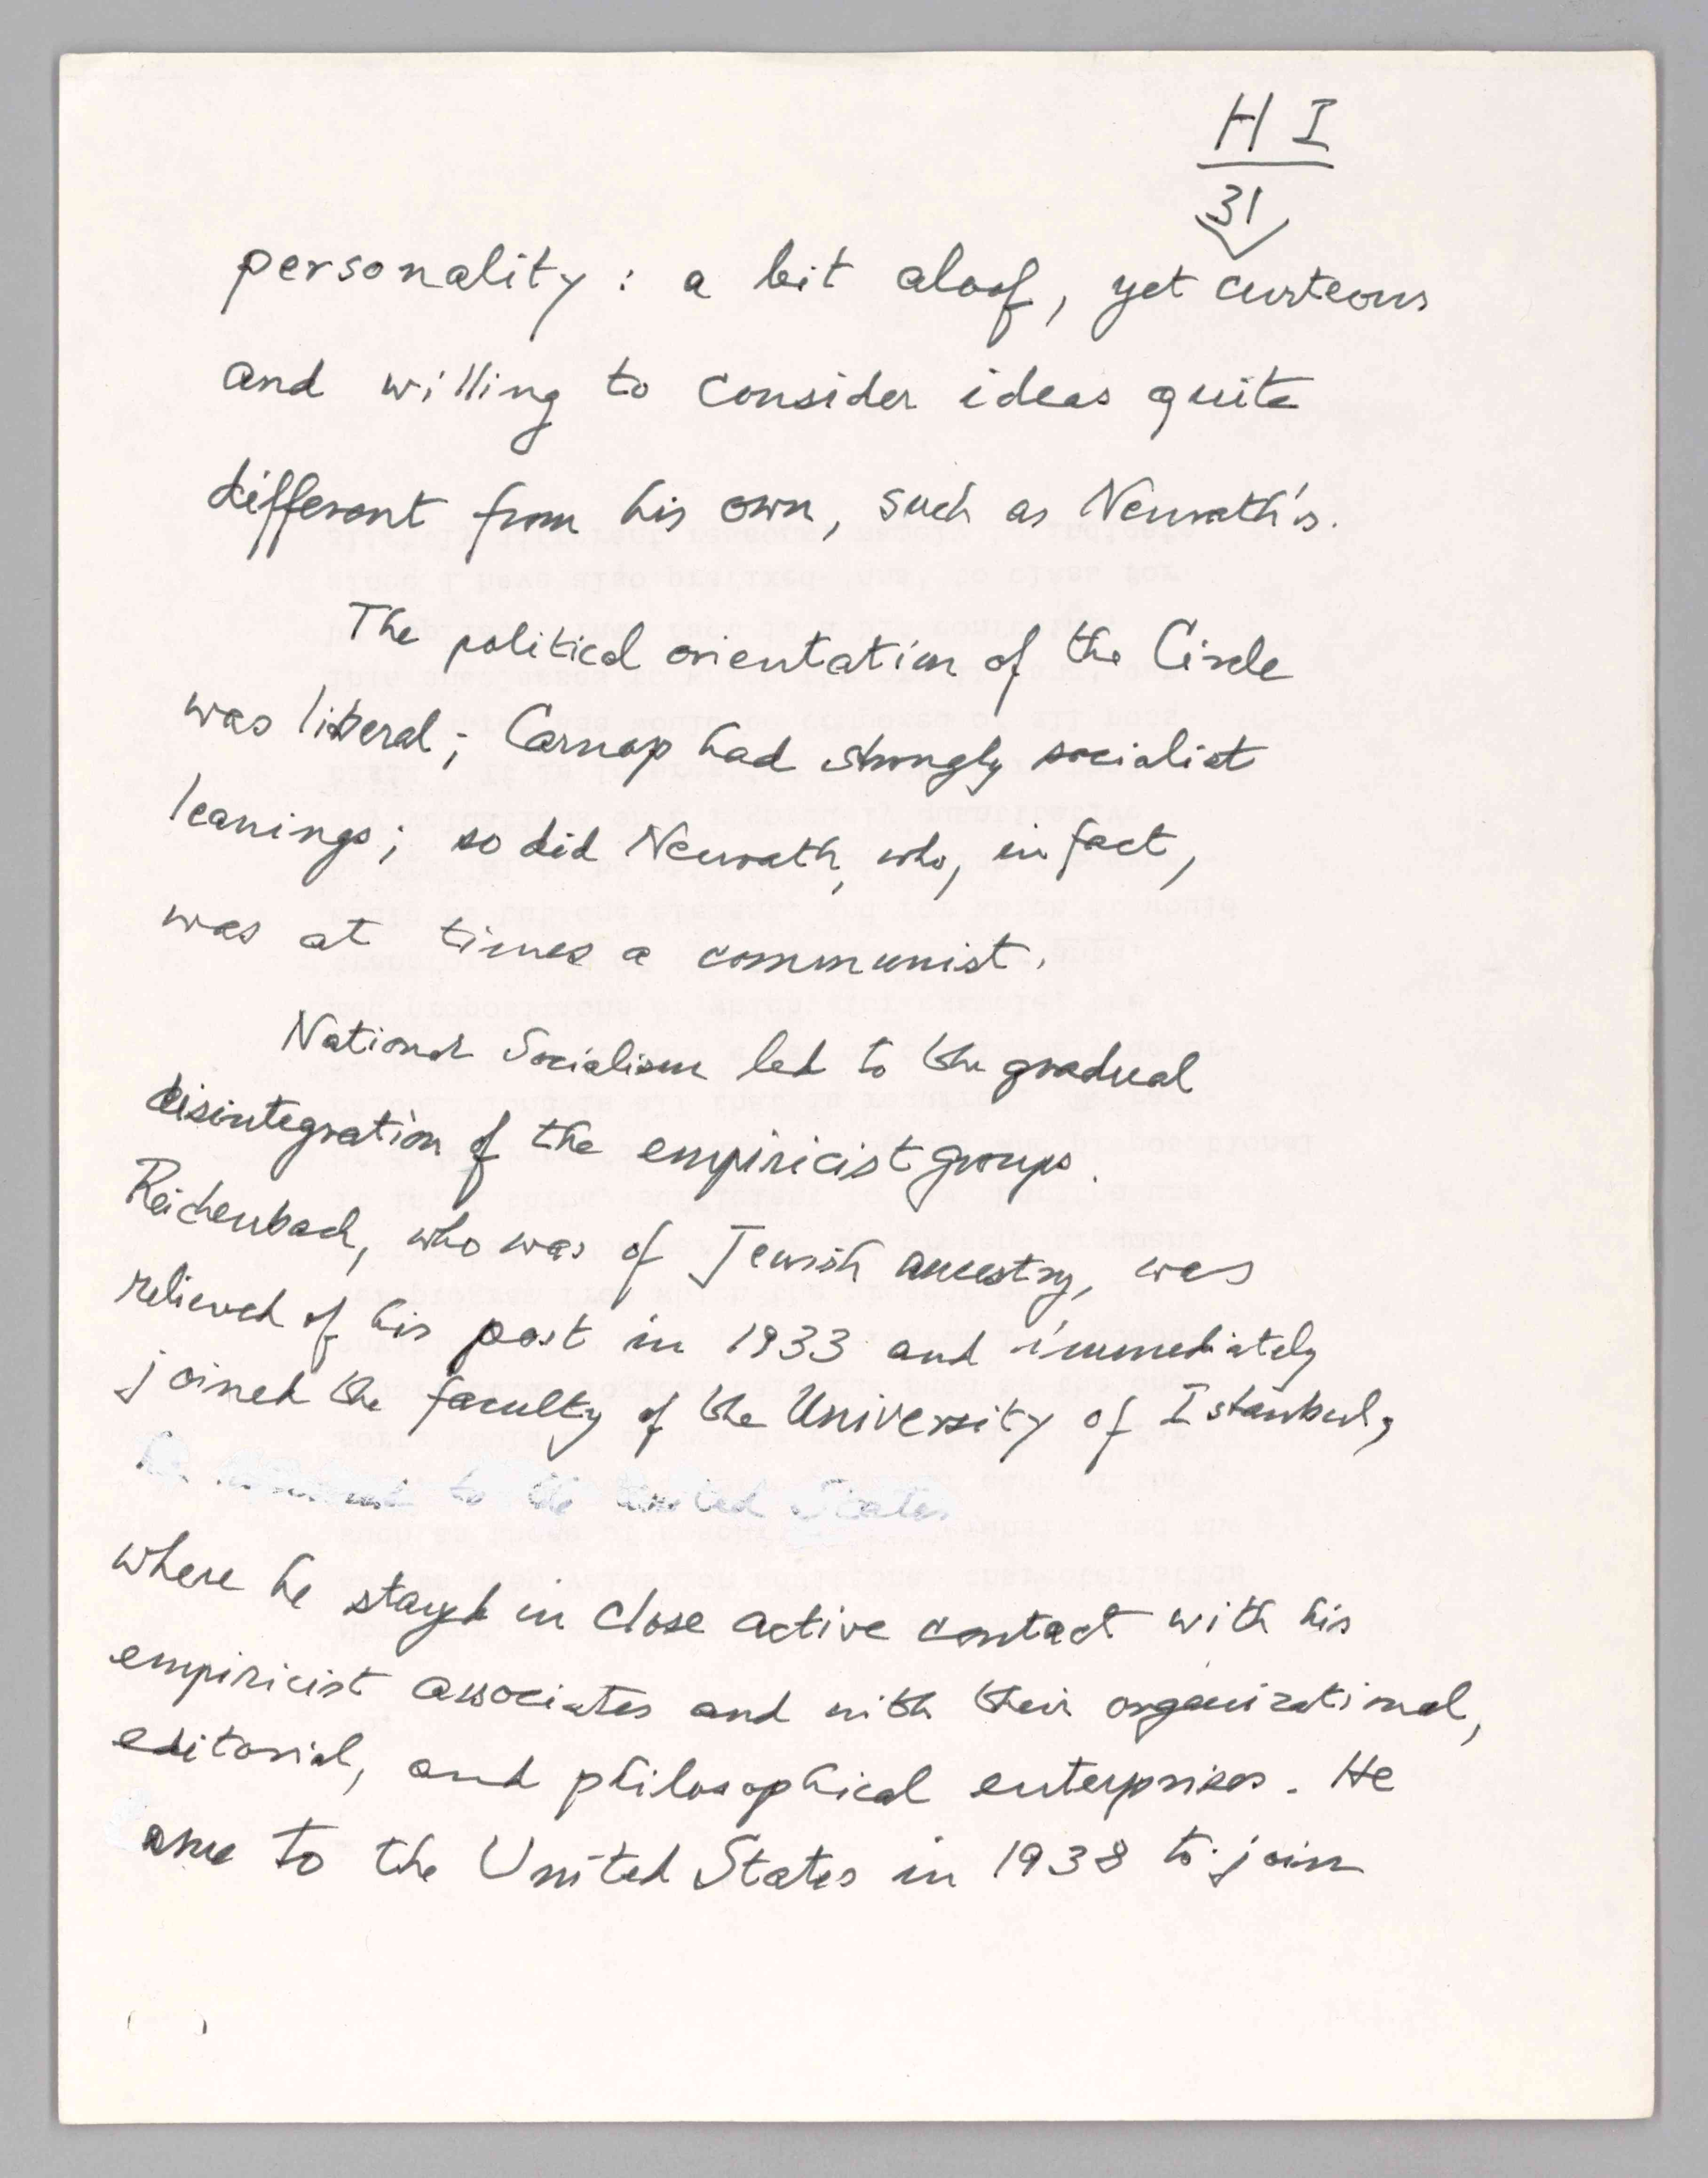 H I
31
personality: a bit aloof, yet curteous
and willing to consider ideas quite
different from his own, such as Neurath's.
The political orientation of the Circle
was liberal; Carnap had strongly socialist
leanings; so did Neurath, who, in fact,
was at times a communist.
National Socialism led to the gradual
disintegration of the empiricist groups.
Reichenbach, who was of Jewish ancestry, was
relieved of his post in 1933 and immediately
joined the faculty of the University of Istanbul,
to the United States
where he stayed in close active contact with his
empiricist associates and with their organizational,
editorial, and philosophical enterprises. He
ame to the United States in 1938 to join